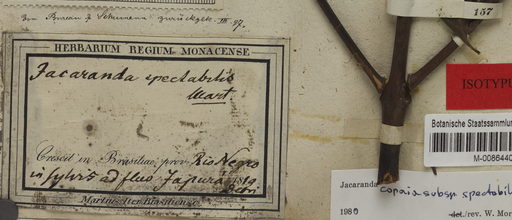 von Bureau & Schumann zurückgek. III 97.
HERBARIUM REGIUM MONACENSE
Jacaranda spectabilis
Mart.
Crescit in Brasiliae prov. Rio Negro
in sylvis ad fluv. Japurá
Martii Iter Brasiliense
157
ISOTYPU
Botanische Staatssammlun
M-0086440
Jacaranda copaia subsp spectabil
1980
det./rev. W. Mor